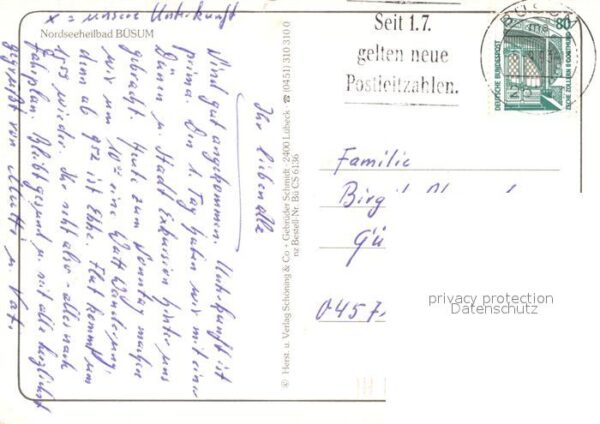 x = unsere Unterkunft
Nordseeheilbad BÜSUM
Ihr lieben alle
Sind gut angekommen. Unterkunft ist
prima. Den 1. Tag haben wir mit einer
Dünen u. Stadt Exkursion hinter uns
gebracht. Heute zum Sonntag machen
wir um 10 eine Watt Wanderung,
denn ab 9 52 ist Ebbe. Flut kommt um
15 55 wieder. Ihr seht also - alles nach
Fahrplan. Bleibt gesund u. seid alle herzlichst
gegrüßt von Mutti u. Vati.
© Herst. u. Verlag Schöning & Co · Gebrüder Schmidt · 2400 Lübeck ☎ (0451) 310 310 0
nz Bestell-Nr. Bü CS 6136
Seit 1.7.
gelten neue
Postleitzahlen.
BÜSUM
80
DEUTSCHE BUNDESPOST
ZECHE ZOLLERN II DORTMUND
Familie
Birgit
Gü
0457
privacy protection
Datenschutz